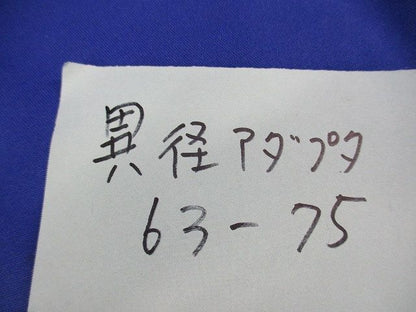 異径アダプタ
63-75